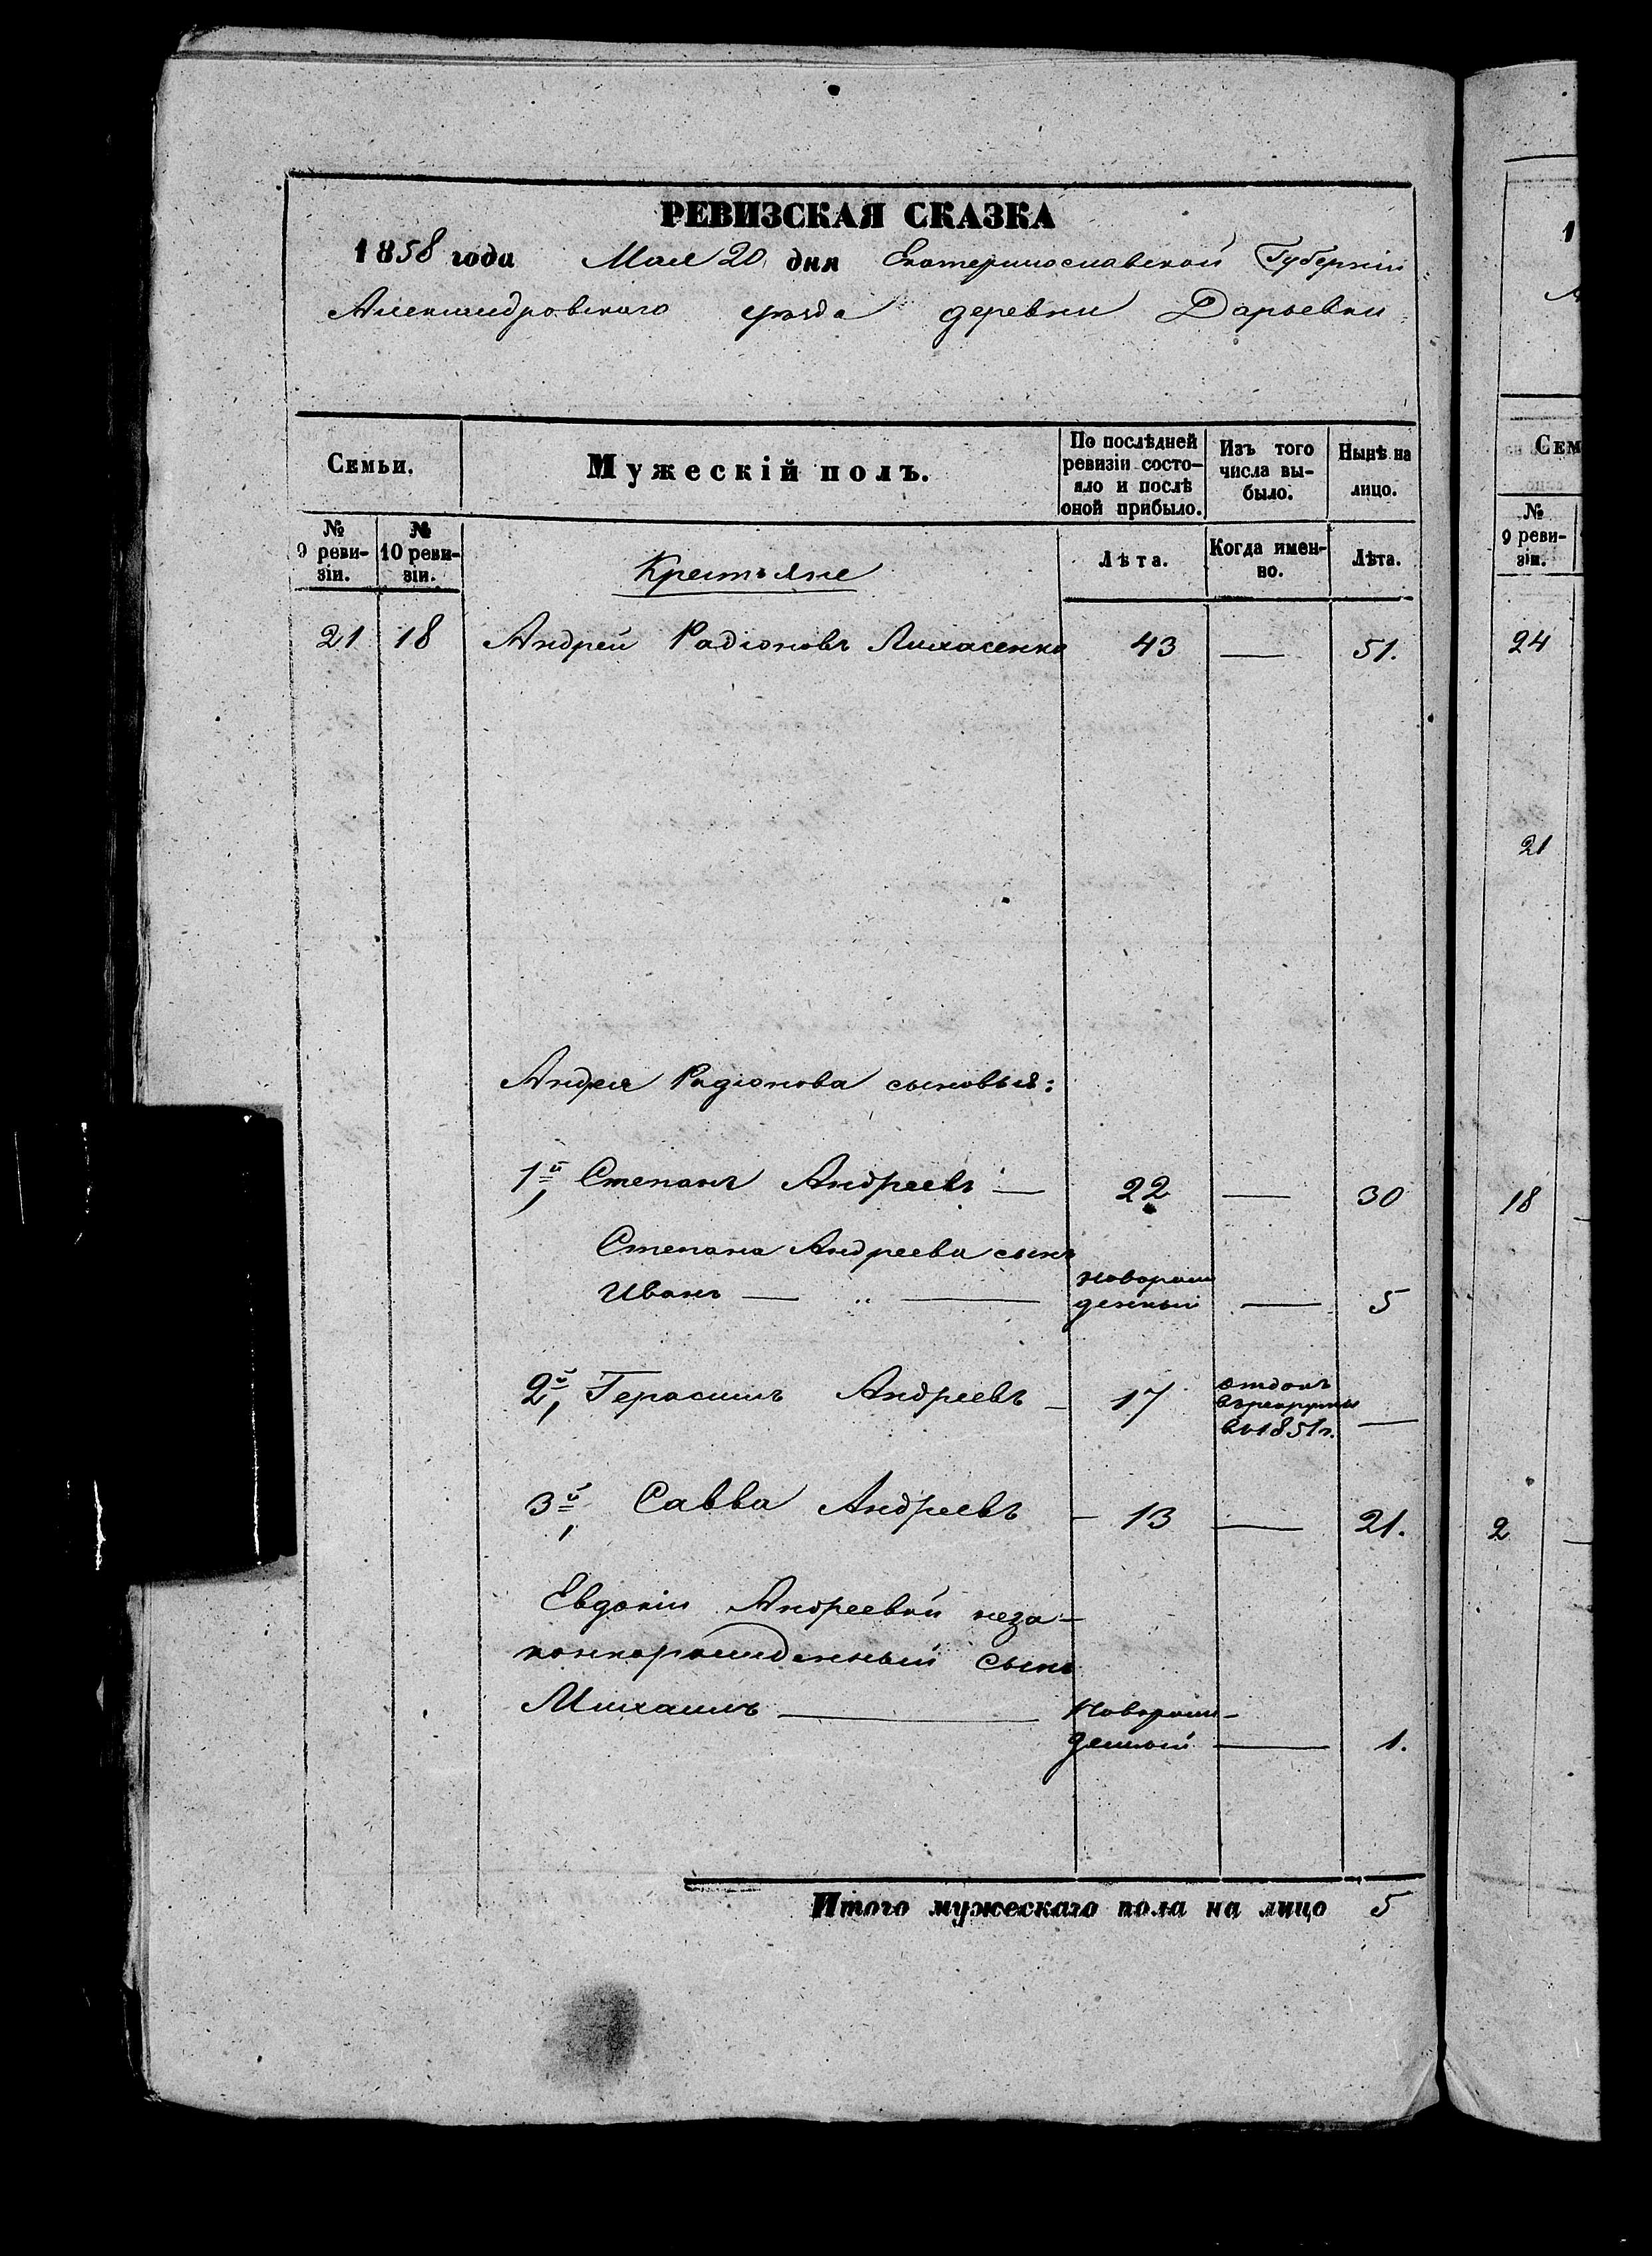 РЕВИЗСКАЯ СКАЗКА
1858 года Мая 20 дня Екатеринославской Губерніи
Александровскаго уѣзда деревни Дарьевки
Семьи.
Мужескій полъ.
По послѣдней ревизіи состо-
яло и послѣ
оной прибыло.
Изъ того
числа вы-
было.
Нынѣ на
лицо.
№
9 реви-
зіи.
№
10 реви-
зіи.
Крестьяне
Лѣта.
Когда имен-
но.
Лѣта.
21 18 Андрей Радіоновъ 43 — 51.
Андрея Радіонова сыновья:
1й, Степанъ Андреевъ — 22 — 30
Степана Андреева сынъ
Иванъ — „ — новорож
денный — 5
2й, Герасимъ Андреевъ — 17 отданъ
въ рекруты
въ 1851 г. —
3й, Савва Андреевъ — 13 — 21.
Евдокіи Андреевой неза-
коннорожденный сынъ
Михаилъ — Новорож-
денный — 1.
Итого мужескаго пола на лицо 5
1
Сем
№
9 реви-
зіи.
24
21
18
2